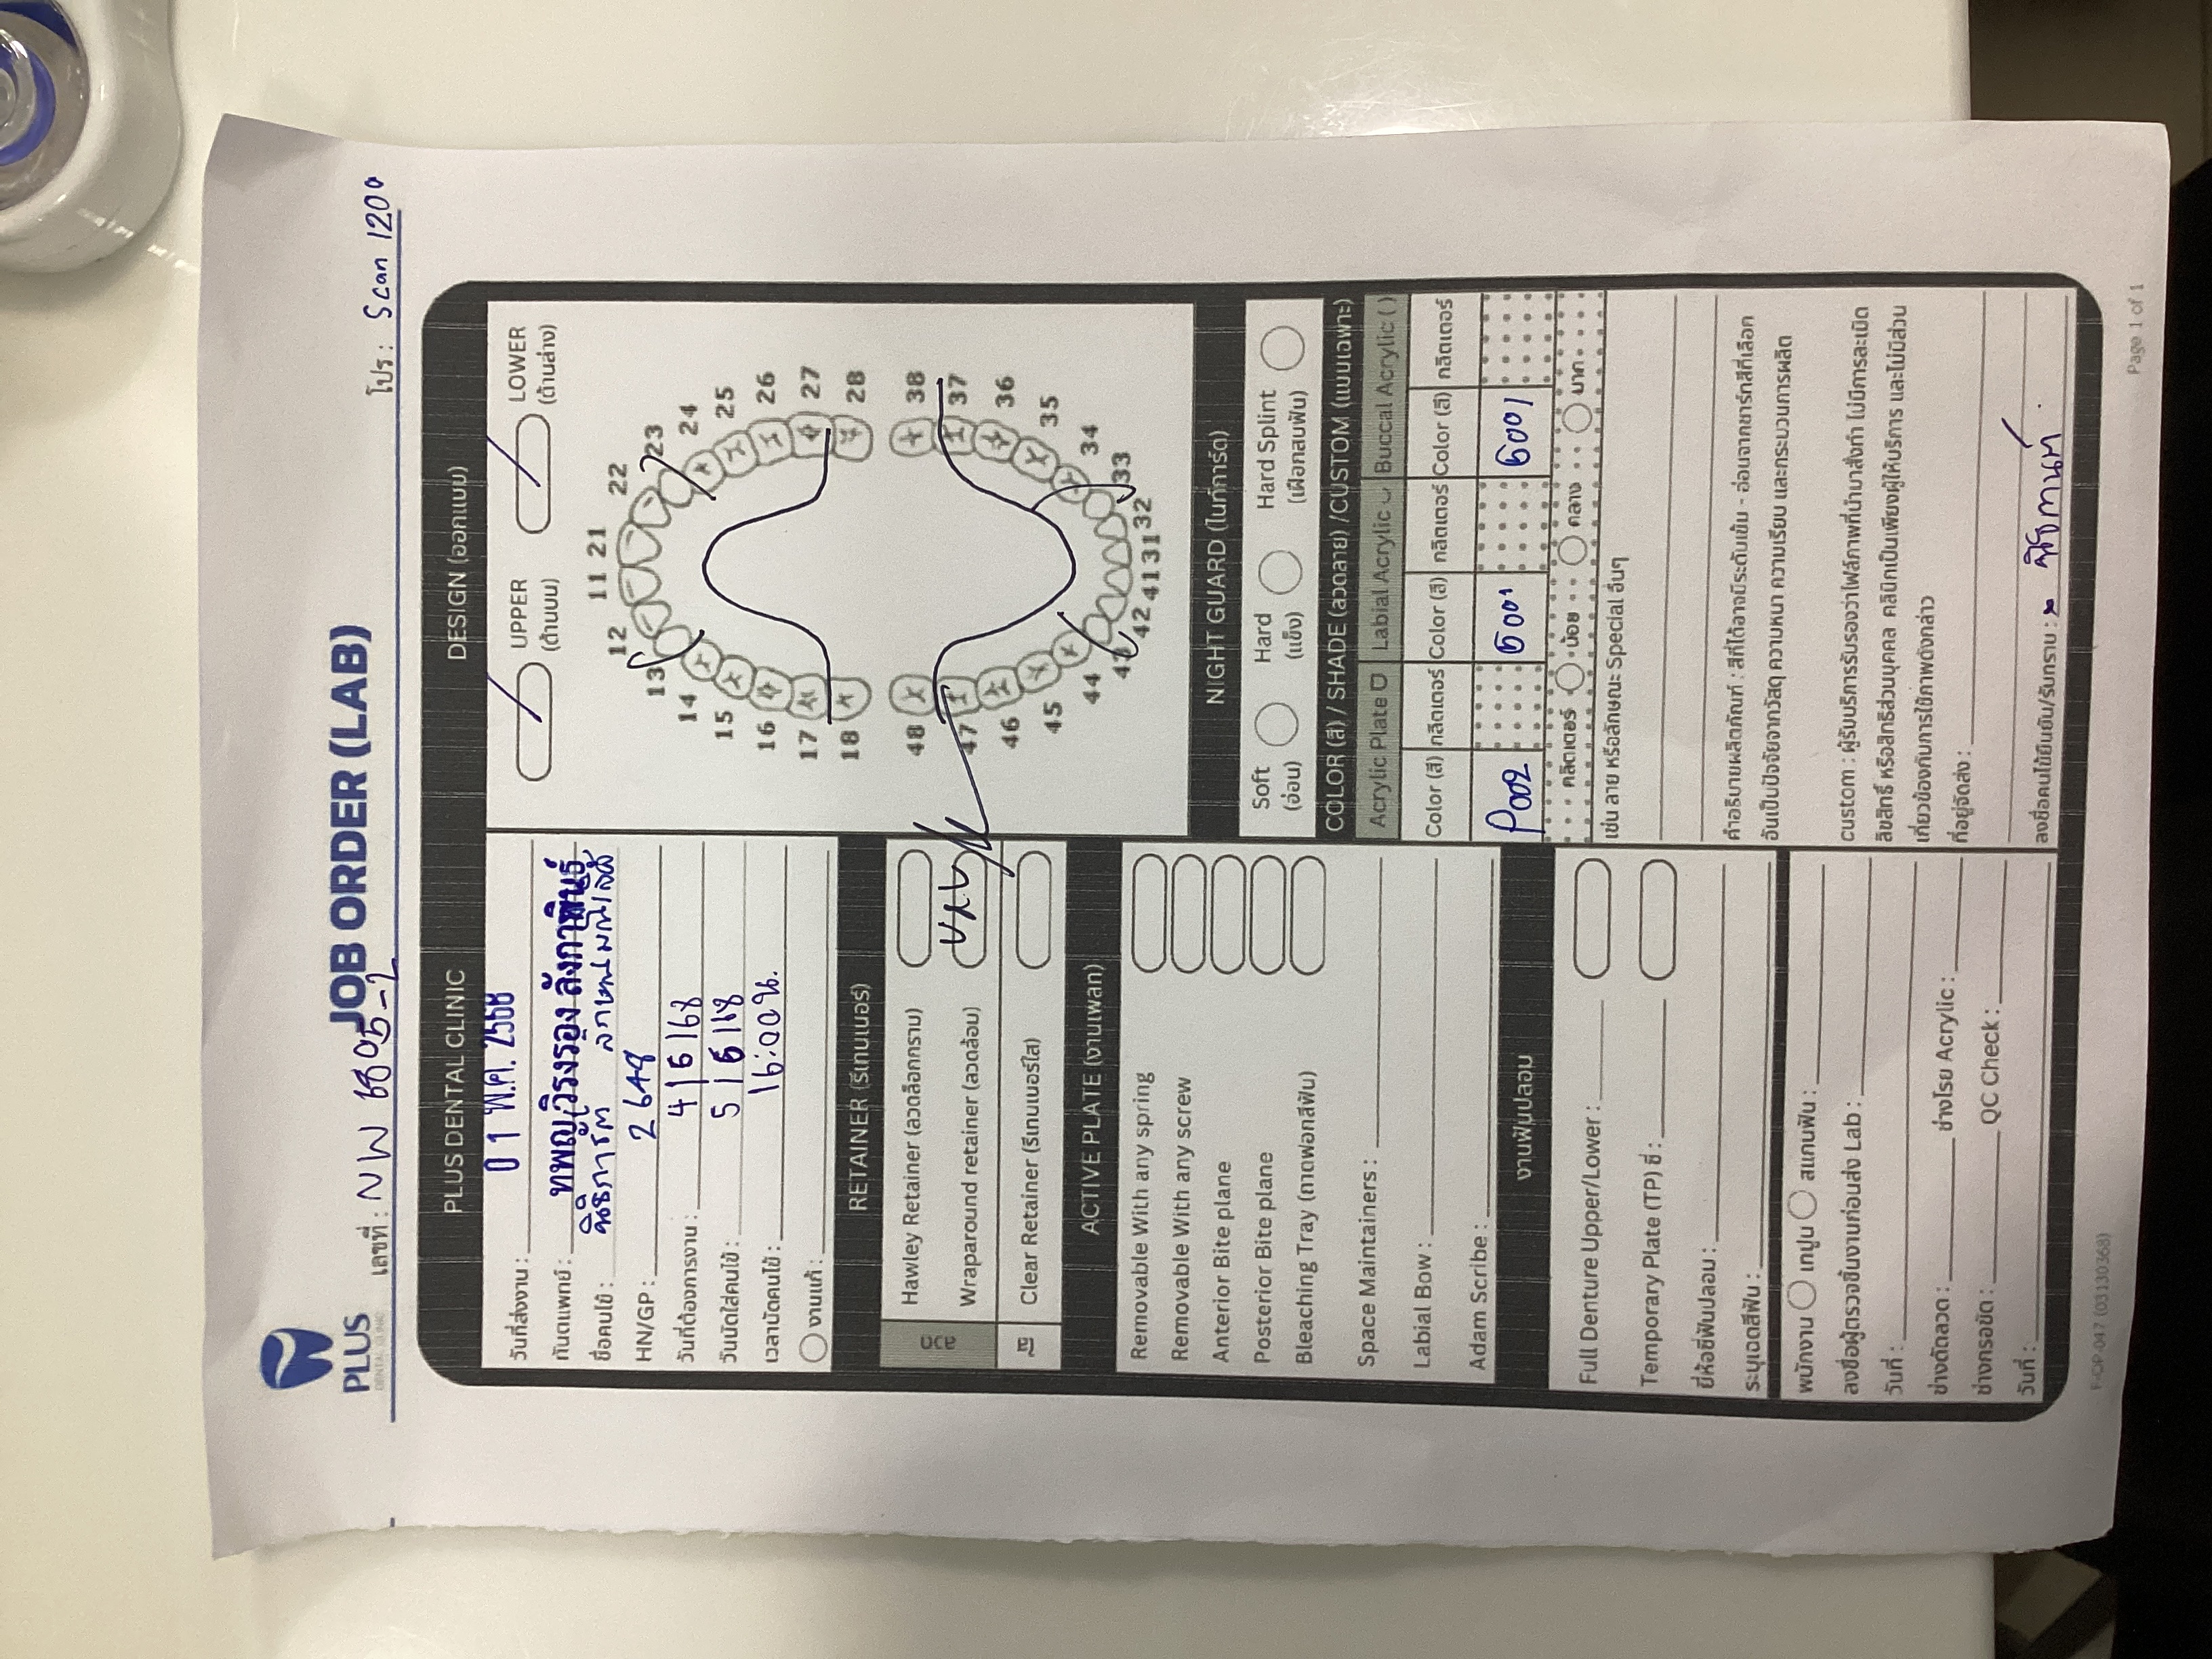 PLUS
DENTAL CLINIC
JOB ORDER (LAB)
เลขที่ : NW 6805-2
โปร : Scan 1200
PLUS DENTAL CLINIC
วันที่ส่งงาน : 0 1 พ.ค. 2568
ทันตแพทย์ : ทพญ.วิรงรอง ลังกาพินธุ์
ชื่อคนไข้ :
HN/GP : 2648
วันที่ต้องการงาน : 4/5/68
วันนัดใส่คนไข้ : 5/5/68
เวลานัดคนไข้ : 16:00 น.
งานแก้ :
RETAINER (รีเทนเนอร์)
ลวด
Hawley Retainer (ลวดล็อกกราม)
Wraparound retainer (ลวดล้อม)
ใส
Clear Retainer (รีเทนเนอร์ใส)
ACTIVE PLATE (งานเพลท)
Removable With any spring
Removable With any screw
Anterior Bite plane
Posterior Bite plane
Bleaching Tray (ถาดฟอกสีฟัน)
Space Maintainers :
Labial Bow :
Adam Scribe :
งานฟันปลอม
Full Denture Upper/Lower :
Temporary Plate (TP) ซี่ :
ยี่ห้อซี่ฟันปลอม :
ระบุเฉดสีฟัน :
พนักงาน เทปูน สแกนฟัน :
ลงชื่อผู้ตรวจชิ้นงานก่อนส่ง Lab :
วันที่ :
ช่างดัดลวด : ช่างโรย Acrylic :
ช่างกรอขัด : QC Check :
วันที่ :
DESIGN (ออกแบบ)
UPPER LOWER
(ด้านบน) (ด้านล่าง)
11 21
12 22
13 23
14 24
15 25
16 26
17 27
18 28
48 38
47 37
46 36
45 35
44 34
43 33
42 41 31 32
NIGHT GUARD (ไนท์การ์ด)
Soft Hard Hard Splint
(อ่อน) (แข็ง) (เฝือกสบฟัน)
COLOR (สี) / SHADE (ลวดลาย) /CUSTOM (แบบเฉพาะ)
Acrylic Plate Labial Acrylic Buccal Acrylic ( )
Color (สี) กลิตเตอร์ Color (สี) กลิตเตอร์ Color (สี) กลิตเตอร์
P002 G001 G001
คลิตเตอร์ น้อย กลาง มาก
เช่น ลาย หรือลักษณะ Special อื่นๆ
คำอธิบายผลิตภัณฑ์ : สีที่ได้อาจมีระดับเข้ม - อ่อนจากชาร์ทสีที่เลือก
อันเป็นปัจจัยจากวัสดุ ความหนา ความเรียบ และกระบวนการผลิต
custom : ผู้รับบริการรับรองว่าไฟล์ภาพที่นำมาสั่งทำ ไม่มีการละเมิด
ลิขสิทธิ์ หรือสิทธิส่วนบุคคล คลินิกเป็นเพียงผู้ให้บริการ และไม่มีส่วน
เกี่ยวข้องกับการใช้ภาพดังกล่าว
ที่อยู่จัดส่ง :
ลงชื่อคนไข้ยืนยัน/รับทราบ :
F-OP-047 (03130368)
Page 1 of 1